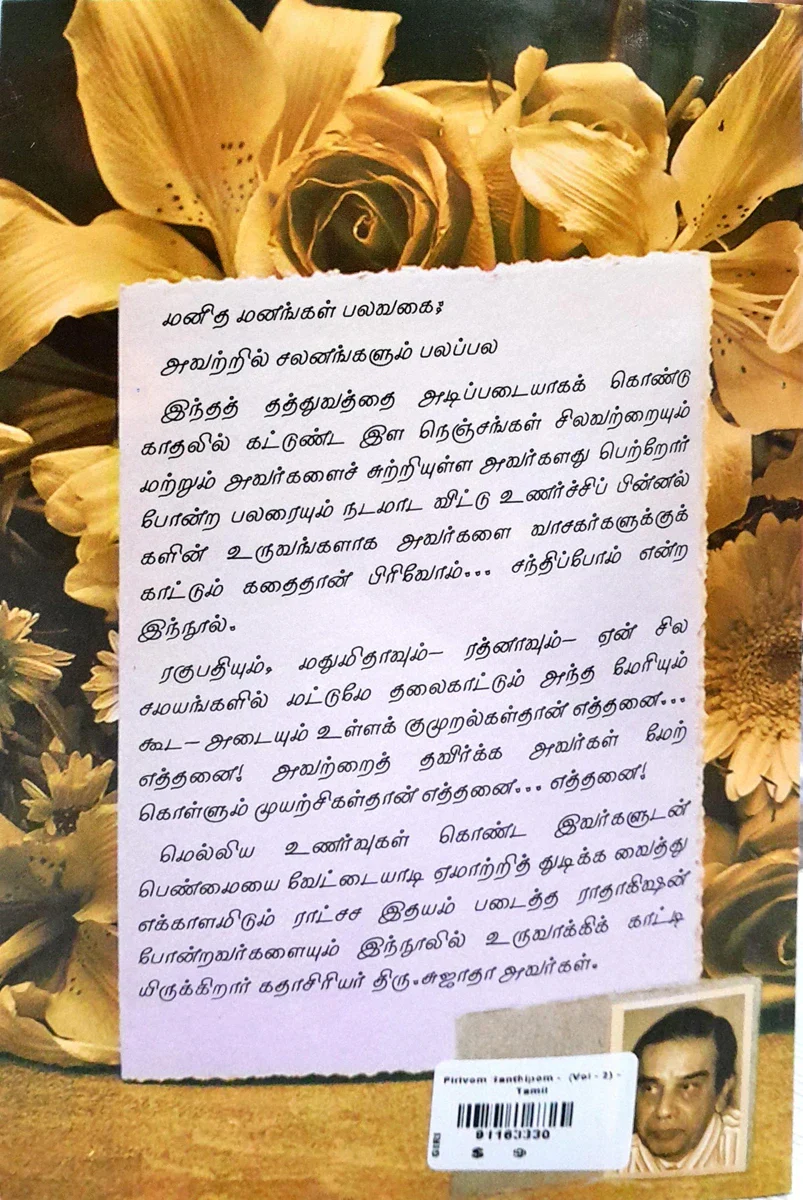 மனித மனங்கள் பலவகை;
அவற்றில் சலனங்களும் பலப்பல
இந்தத் தத்துவத்தை அடிப்படையாகக் கொண்டு
காதலில் கட்டுண்ட இள நெஞ்சங்கள் சிலவற்றையும்
மற்றும் அவர்களைச் சுற்றியுள்ள அவர்களது பெற்றோர்
போன்ற பலரையும் நடமாட விட்டு உணர்ச்சிப் பின்னல்
களின் உருவங்களாக அவர்களை வாசகர்களுக்குக்
காட்டும் கதைதான் பிரிவோம்... சந்திப்போம் என்ற
இந்நூல்.
ரகுபதியும், மதுமிதாவும்– ரத்னாவும்– ஏன் சில
சமயங்களில் மட்டுமே தலைகாட்டும் அந்த மேரியும்
கூட– அடையும் உள்ளக் குமுறல்கள்தான் எத்தனை...
எத்தனை! அவற்றைத் தவிர்க்க அவர்கள் மேற்
கொள்ளும் முயற்சிகள்தான் எத்தனை... எத்தனை!
மெல்லிய உணர்வுகள் கொண்ட இவர்களுடன்
பெண்மையை வேட்டையாடி ஏமாற்றித் துடிக்க வைத்து
எக்காளமிடும் ராட்சச இதயம் படைத்த ராதாகிஷன்
போன்றவர்களையும் இந்நூலில் உருவாக்கிக் காட்டி
யிருக்கிறார் கதாசிரியர் திரு.சுஜாதா அவர்கள்.
Pirivom Santhipom - (Vol - 2) -
Tamil
GIRI
91163330